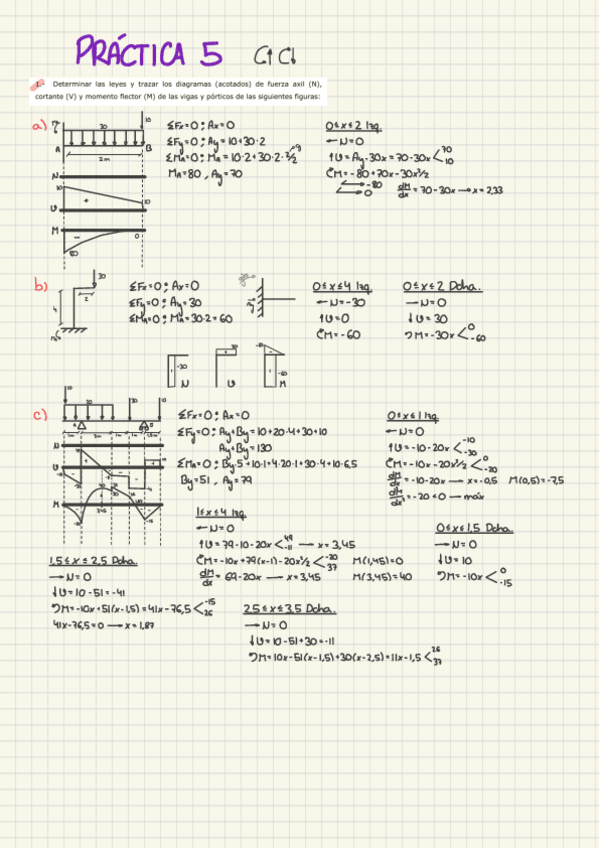 PRÁCTICA 5
1.- Determinar las leyes y trazar los diagramas (acotados) de fuerza axil (N),
cortante (V) y momento flector (M) de las vigas y pórticos de las siguientes figuras:
a)
10
30
A
B
2m
N
10
U
+
10
M
-
0
80
ΣFx=0; Ax=0
ΣFy=0; Ay=10+30·2
ΣMA=0; MA=10·2+30·2·2/2
MA=80, Ay=70
0≤x≤2 Izq.
← N=0
↑U=Ay-30x=70-30x< 70 10
M=-80+70x-30x²/2
-80
0
dM/dx=70-30x → x=2,33
b)
30
2
ΣFx=0; Ax=0
ΣFy=0; Ay=30
ΣMA=0; MA=30·2=60
0≤x≤4 Izq.
← N=-30
↑U=0
M=-60
0≤x≤2 Dcha.
→ N=0
↓U=30
M=-30x< 0 -60
-30
N
30
U
-60
M
c)
10
20
30
10
N
U
M
ΣFx=0; Ax=0
ΣFy=0; Ay+By=10+20·4+30+10
Ay+By=130
ΣMA=0; By·5+10·1=4·20·1+30·4+10·6,5
By=51, Ay=79
0≤x≤1 Izq
← N=0
↑U=-10-20x< -10 -30
M=-10x-20x²/2< 0 -20
dM/dx=-10-20x → x=-0,5 M(0,5)=-7,5
=-20<0 → máx
1≤x≤4 Izq
← N=0
↑U=79-10-20x< 49 -11 → x=3,45
M=-10x+79(x-1)-20x²/2< -20 37 M(1,45)=0
dM/dx=69-20x → x=3,45 M(3,45)=40
0≤x≤1,5 Dcha.
→ N=0
↓U=10
M=-10x< 0 -15
1,5≤x≤2,5 Dcha.
→ N=0
↓U=10-51=-41
M=-10x+51(x-1,5)=41x-76,5< -15 26
41x-76,5=0 → x=1,87
2,5≤x≤3,5 Dcha.
→ N=0
↓U=10-51+30=-11
M=10x-51(x-1,5)+30(x-2,5)=11x-1,5< 26 37